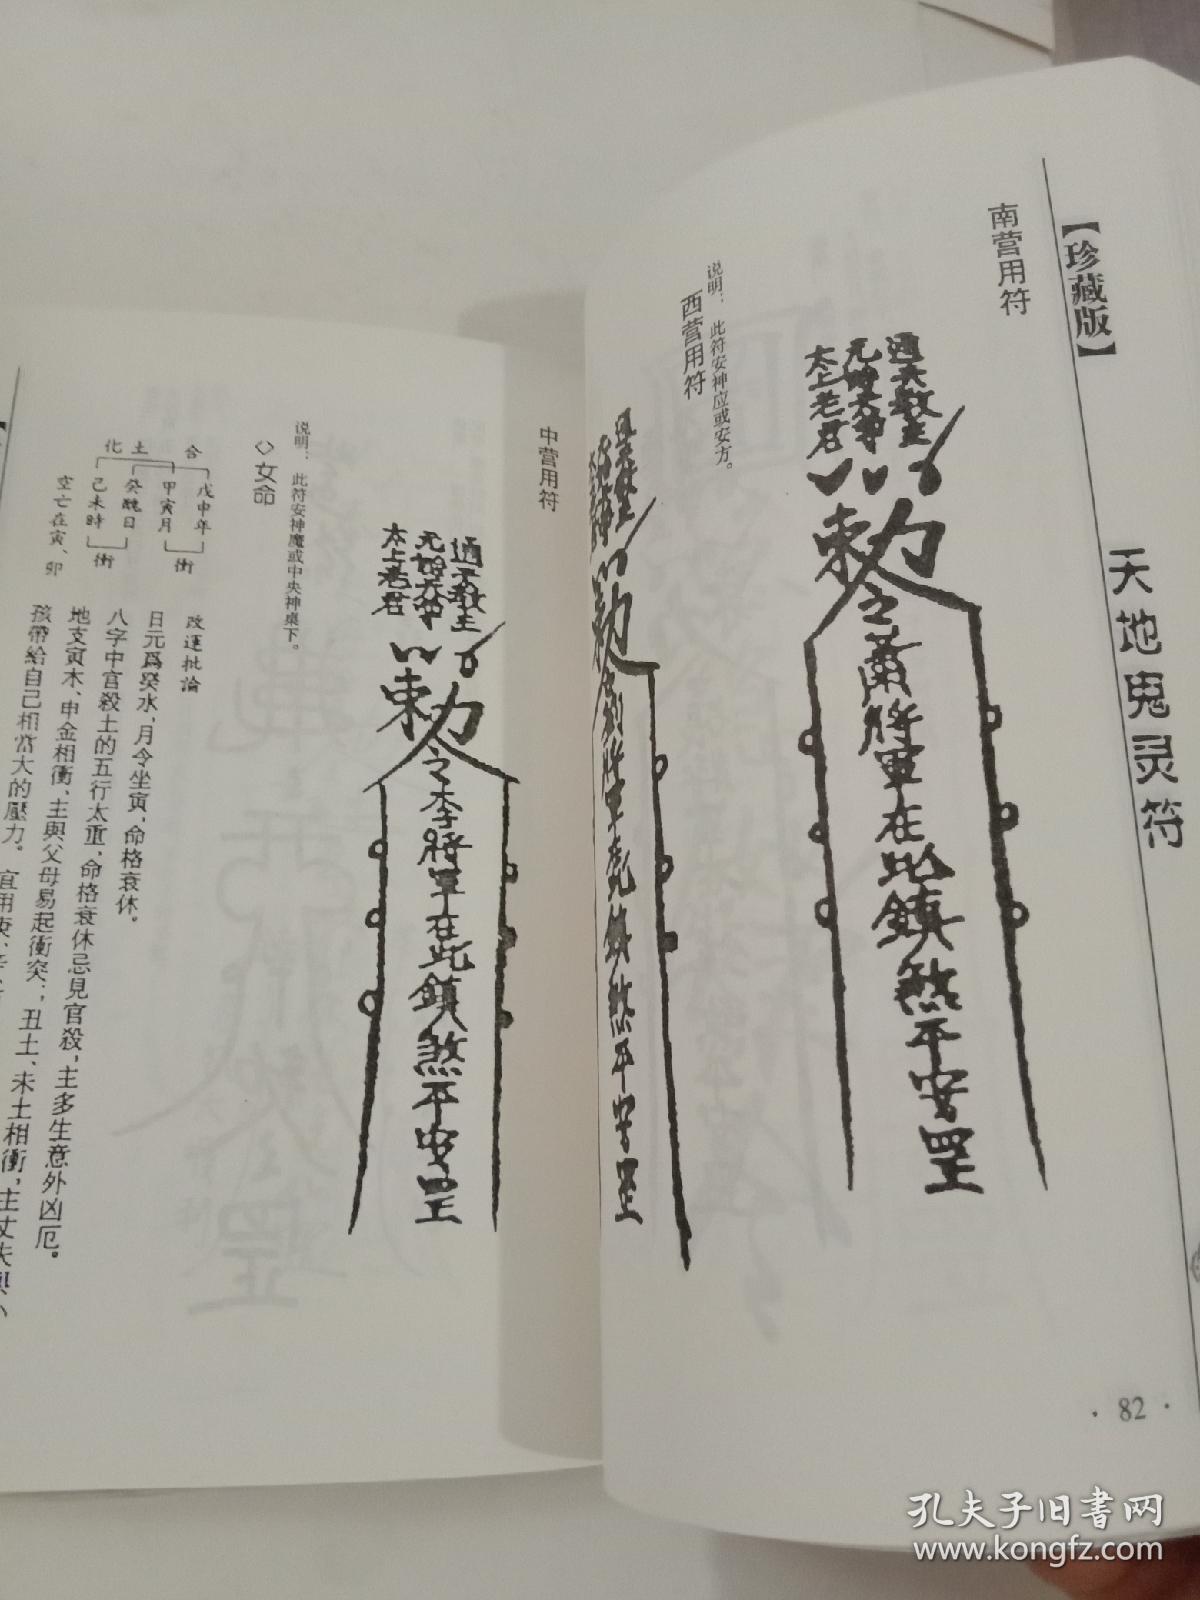 【珍藏版】
天地鬼灵符
南营用符
通天教主
元始天尊
太上老君
勅令蕭將軍在此鎮煞平安罡
说明：此符安神应或安方。
西营用符
勅令劉將軍在此鎮煞平安罡
· 82 ·
中营用符
通天教主
元始天尊
太上老君
勅令李將軍在此鎮煞平安罡
说明：此符安神魔或中央神桌下。
◇女命
合
化土
戊申年
甲寅月
癸醜日
己未時
衝
衝
空亡在寅、卯
改運批論
日元爲癸水，月令坐寅，命格衰休。
八字中官殺土的五行太重，命格衰休忌見官殺，主多生意外凶厄。
地支寅木、申金相衝、主與父母易起衝突；丑土、未土相衝，主丈夫與小
孩帶給自己相當大的壓力。宜用庚、
孔夫子旧书网
www.kongfz.com